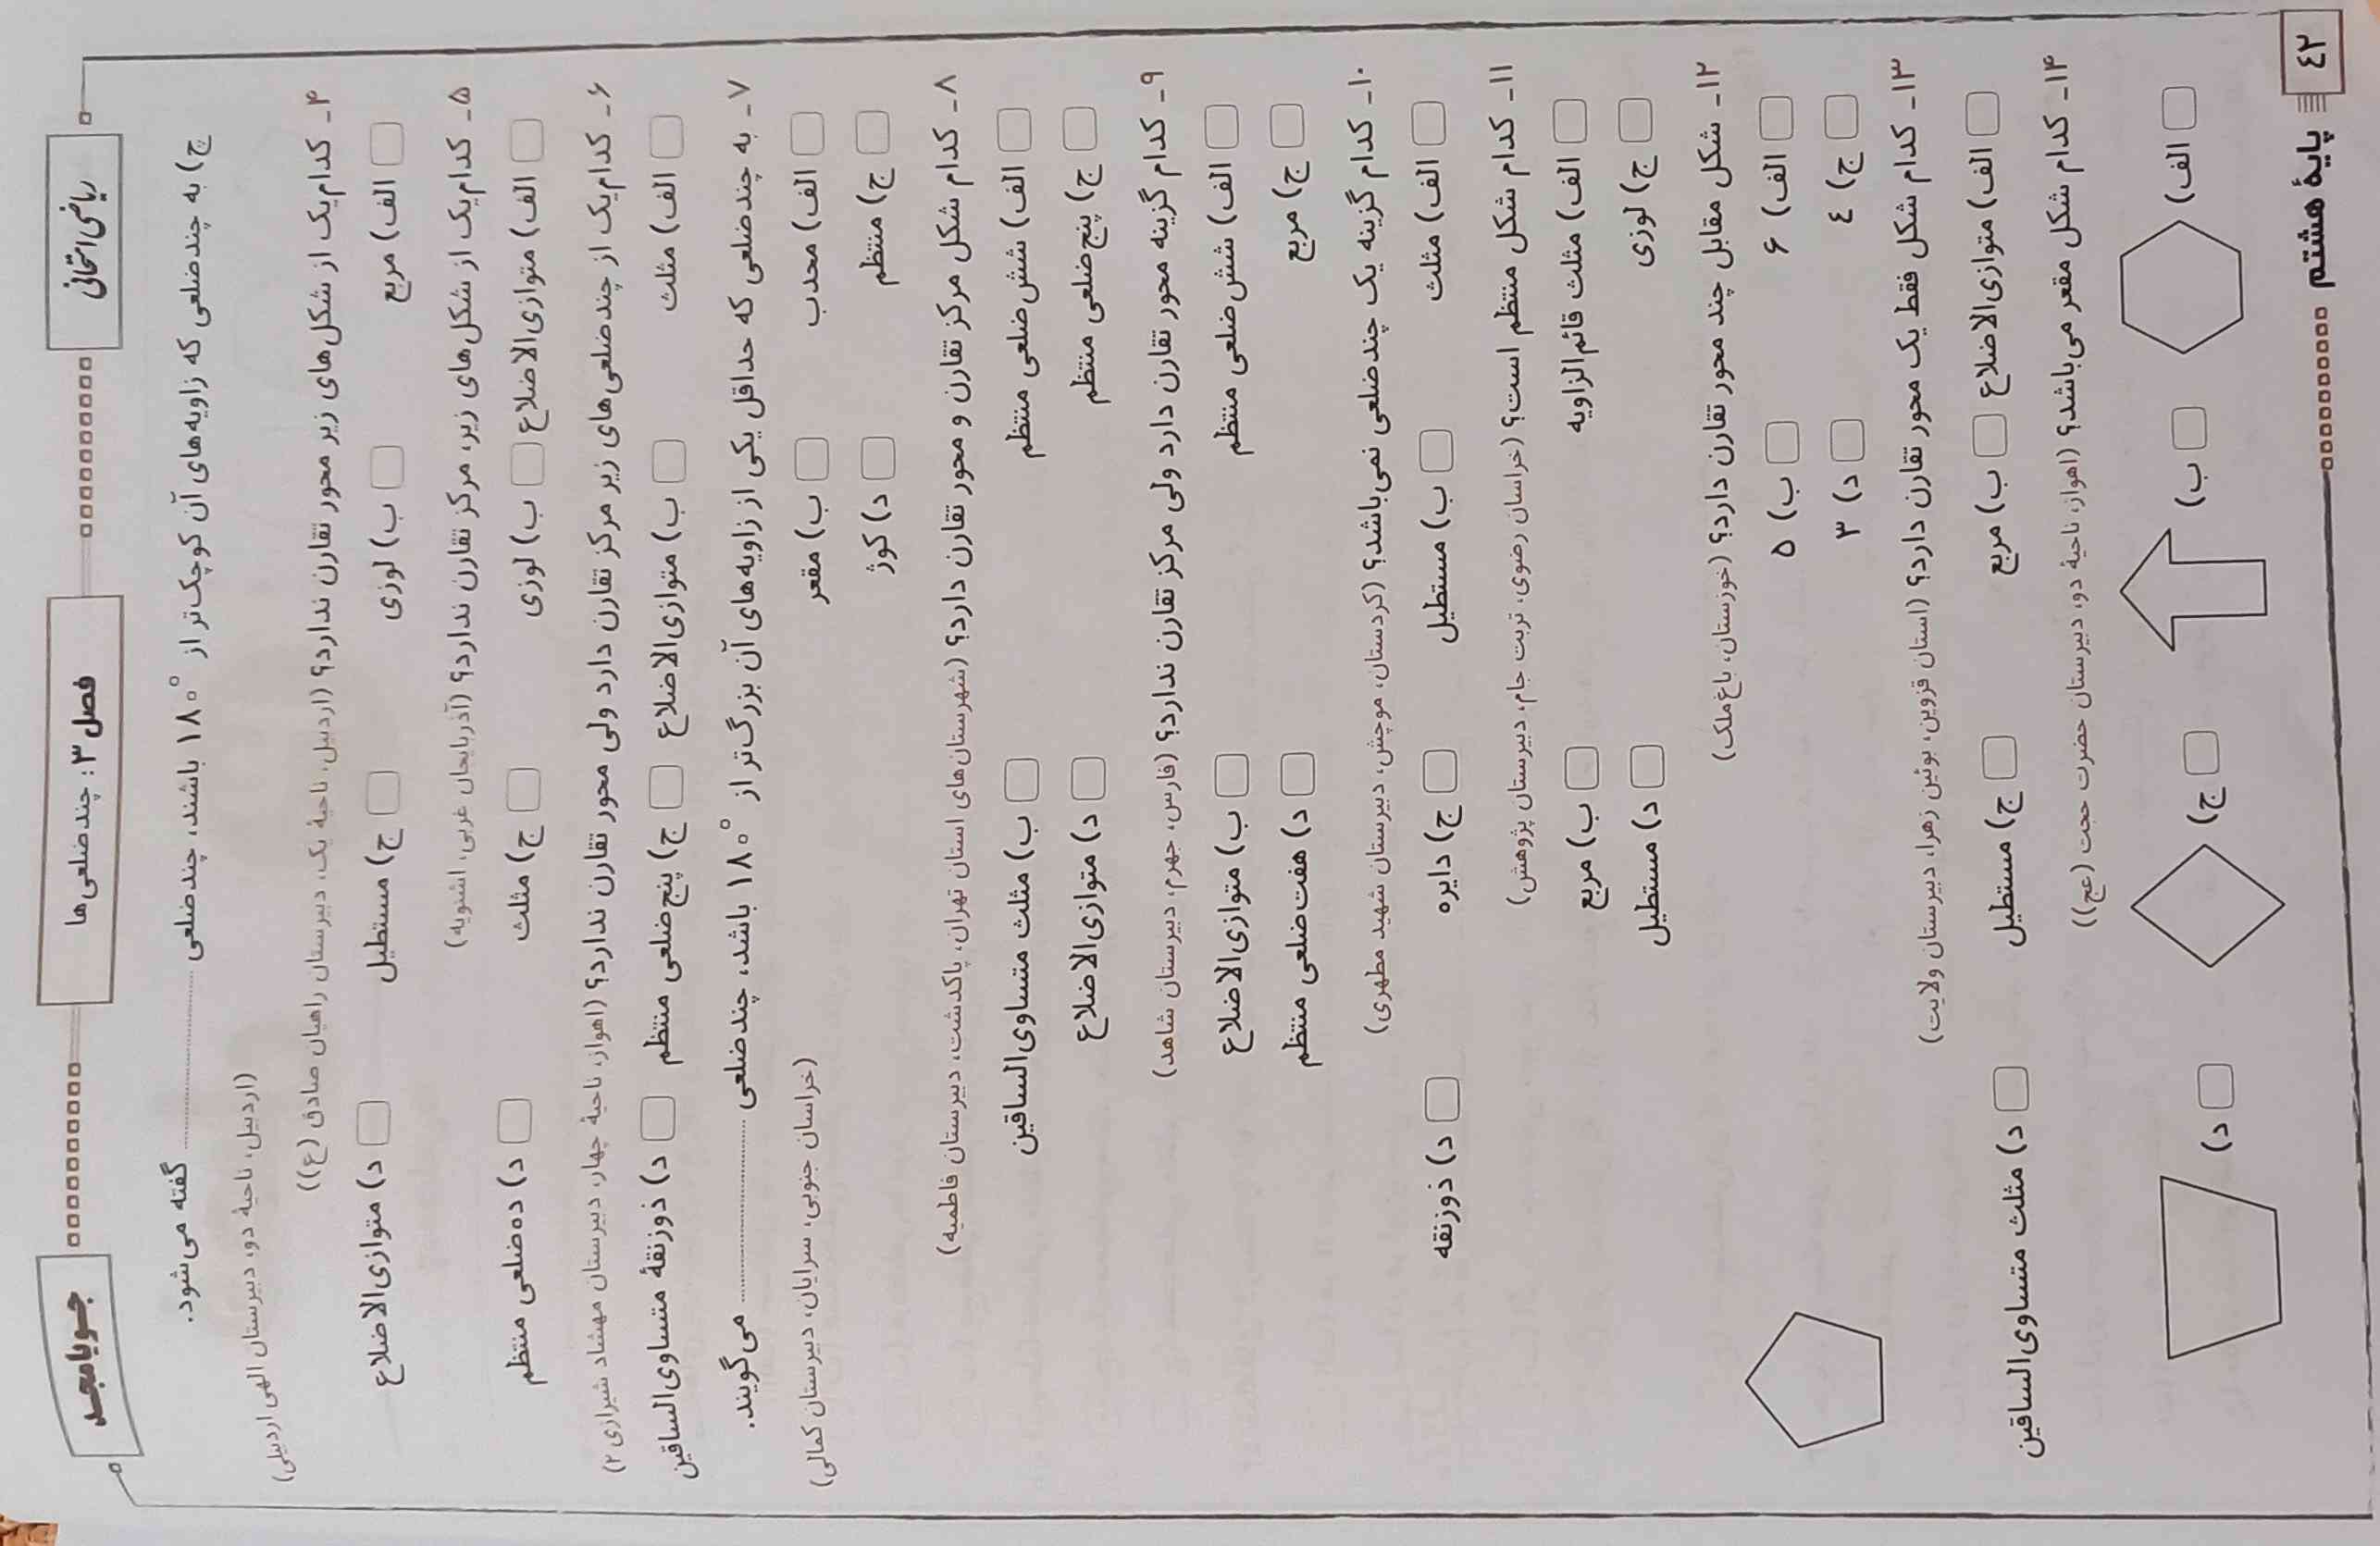 ریاضی امتحانی
فصل ۳: چندضلعی‌ها
جویا مجد
ج) به چندضلعی که زاویه‌های آن کوچک‌تر از ۱۸۰° باشند، چندضلعی .................... گفته می‌شود.
(اردبیل، ناحیهٔ دو، دبیرستان الهی اردبیلی)
۴- کدام‌یک از شکل‌های زیر محور تقارن ندارد؟ (اردبیل، ناحیهٔ یک، دبیرستان راهیان صادق (ع))
الف) مربع ب) لوزی ج) مستطیل د) متوازی‌الاضلاع
۵- کدام‌یک از شکل‌های زیر، مرکز تقارن ندارد؟ (آذربایجان غربی، اشنویه)
الف) متوازی‌الاضلاع ب) لوزی ج) مثلث د) ده‌ضلعی منتظم
۶- کدام‌یک از چندضلعی‌های زیر مرکز تقارن دارد ولی محور تقارن ندارد؟ (اهواز، ناحیهٔ چهار، دبیرستان مهشاد شیرازی ۲)
الف) مثلث ب) متوازی‌الاضلاع ج) پنج‌ضلعی منتظم د) ذوزنقهٔ متساوی‌الساقین
۷- به چندضلعی که حداقل یکی از زاویه‌های آن بزرگ‌تر از ۱۸۰° باشد، چندضلعی .................... می‌گویند.
(خراسان جنوبی، سرایان، دبیرستان کمالی)
الف) محدب ب) مقعر
ج) منتظم د) کوژ
۸- کدام شکل مرکز تقارن و محور تقارن دارد؟ (شهرستان‌های استان تهران، پاکدشت، دبیرستان فاطمیه)
الف) شش‌ضلعی منتظم ب) مثلث متساوی‌الساقین
ج) پنج‌ضلعی منتظم د) متوازی‌الاضلاع
۹- کدام گزینه محور تقارن دارد ولی مرکز تقارن ندارد؟ (فارس، جهرم، دبیرستان شاهد)
الف) شش‌ضلعی منتظم ب) متوازی‌الاضلاع
ج) مربع د) هفت‌ضلعی منتظم
۱۰- کدام گزینه یک چندضلعی نمی‌باشد؟ (کردستان، موچش، دبیرستان شهید مطهری)
الف) مثلث ب) مستطیل ج) دایره د) ذوزنقه
۱۱- کدام شکل منتظم است؟ (خراسان رضوی، تربت جام، دبیرستان پژوهش)
الف) مثلث قائم‌الزاویه ب) مربع
ج) لوزی د) مستطیل
۱۲- شکل مقابل چند محور تقارن دارد؟ (خوزستان، باغ‌ملک)
الف) ۶ ب) ۵
ج) ٤ د) ۳
۱۳- کدام شکل فقط یک محور تقارن دارد؟ (استان قزوین، بوئین زهرا، دبیرستان ولایت)
الف) متوازی‌الاضلاع ب) مربع ج) مستطیل د) مثلث متساوی‌الساقین
۱۴- کدام شکل مقعر می‌باشد؟ (اهواز، ناحیهٔ دو، دبیرستان حضرت حجت (عج))
الف) ب) ج) د)
٤۲ پایهٔ هشتم